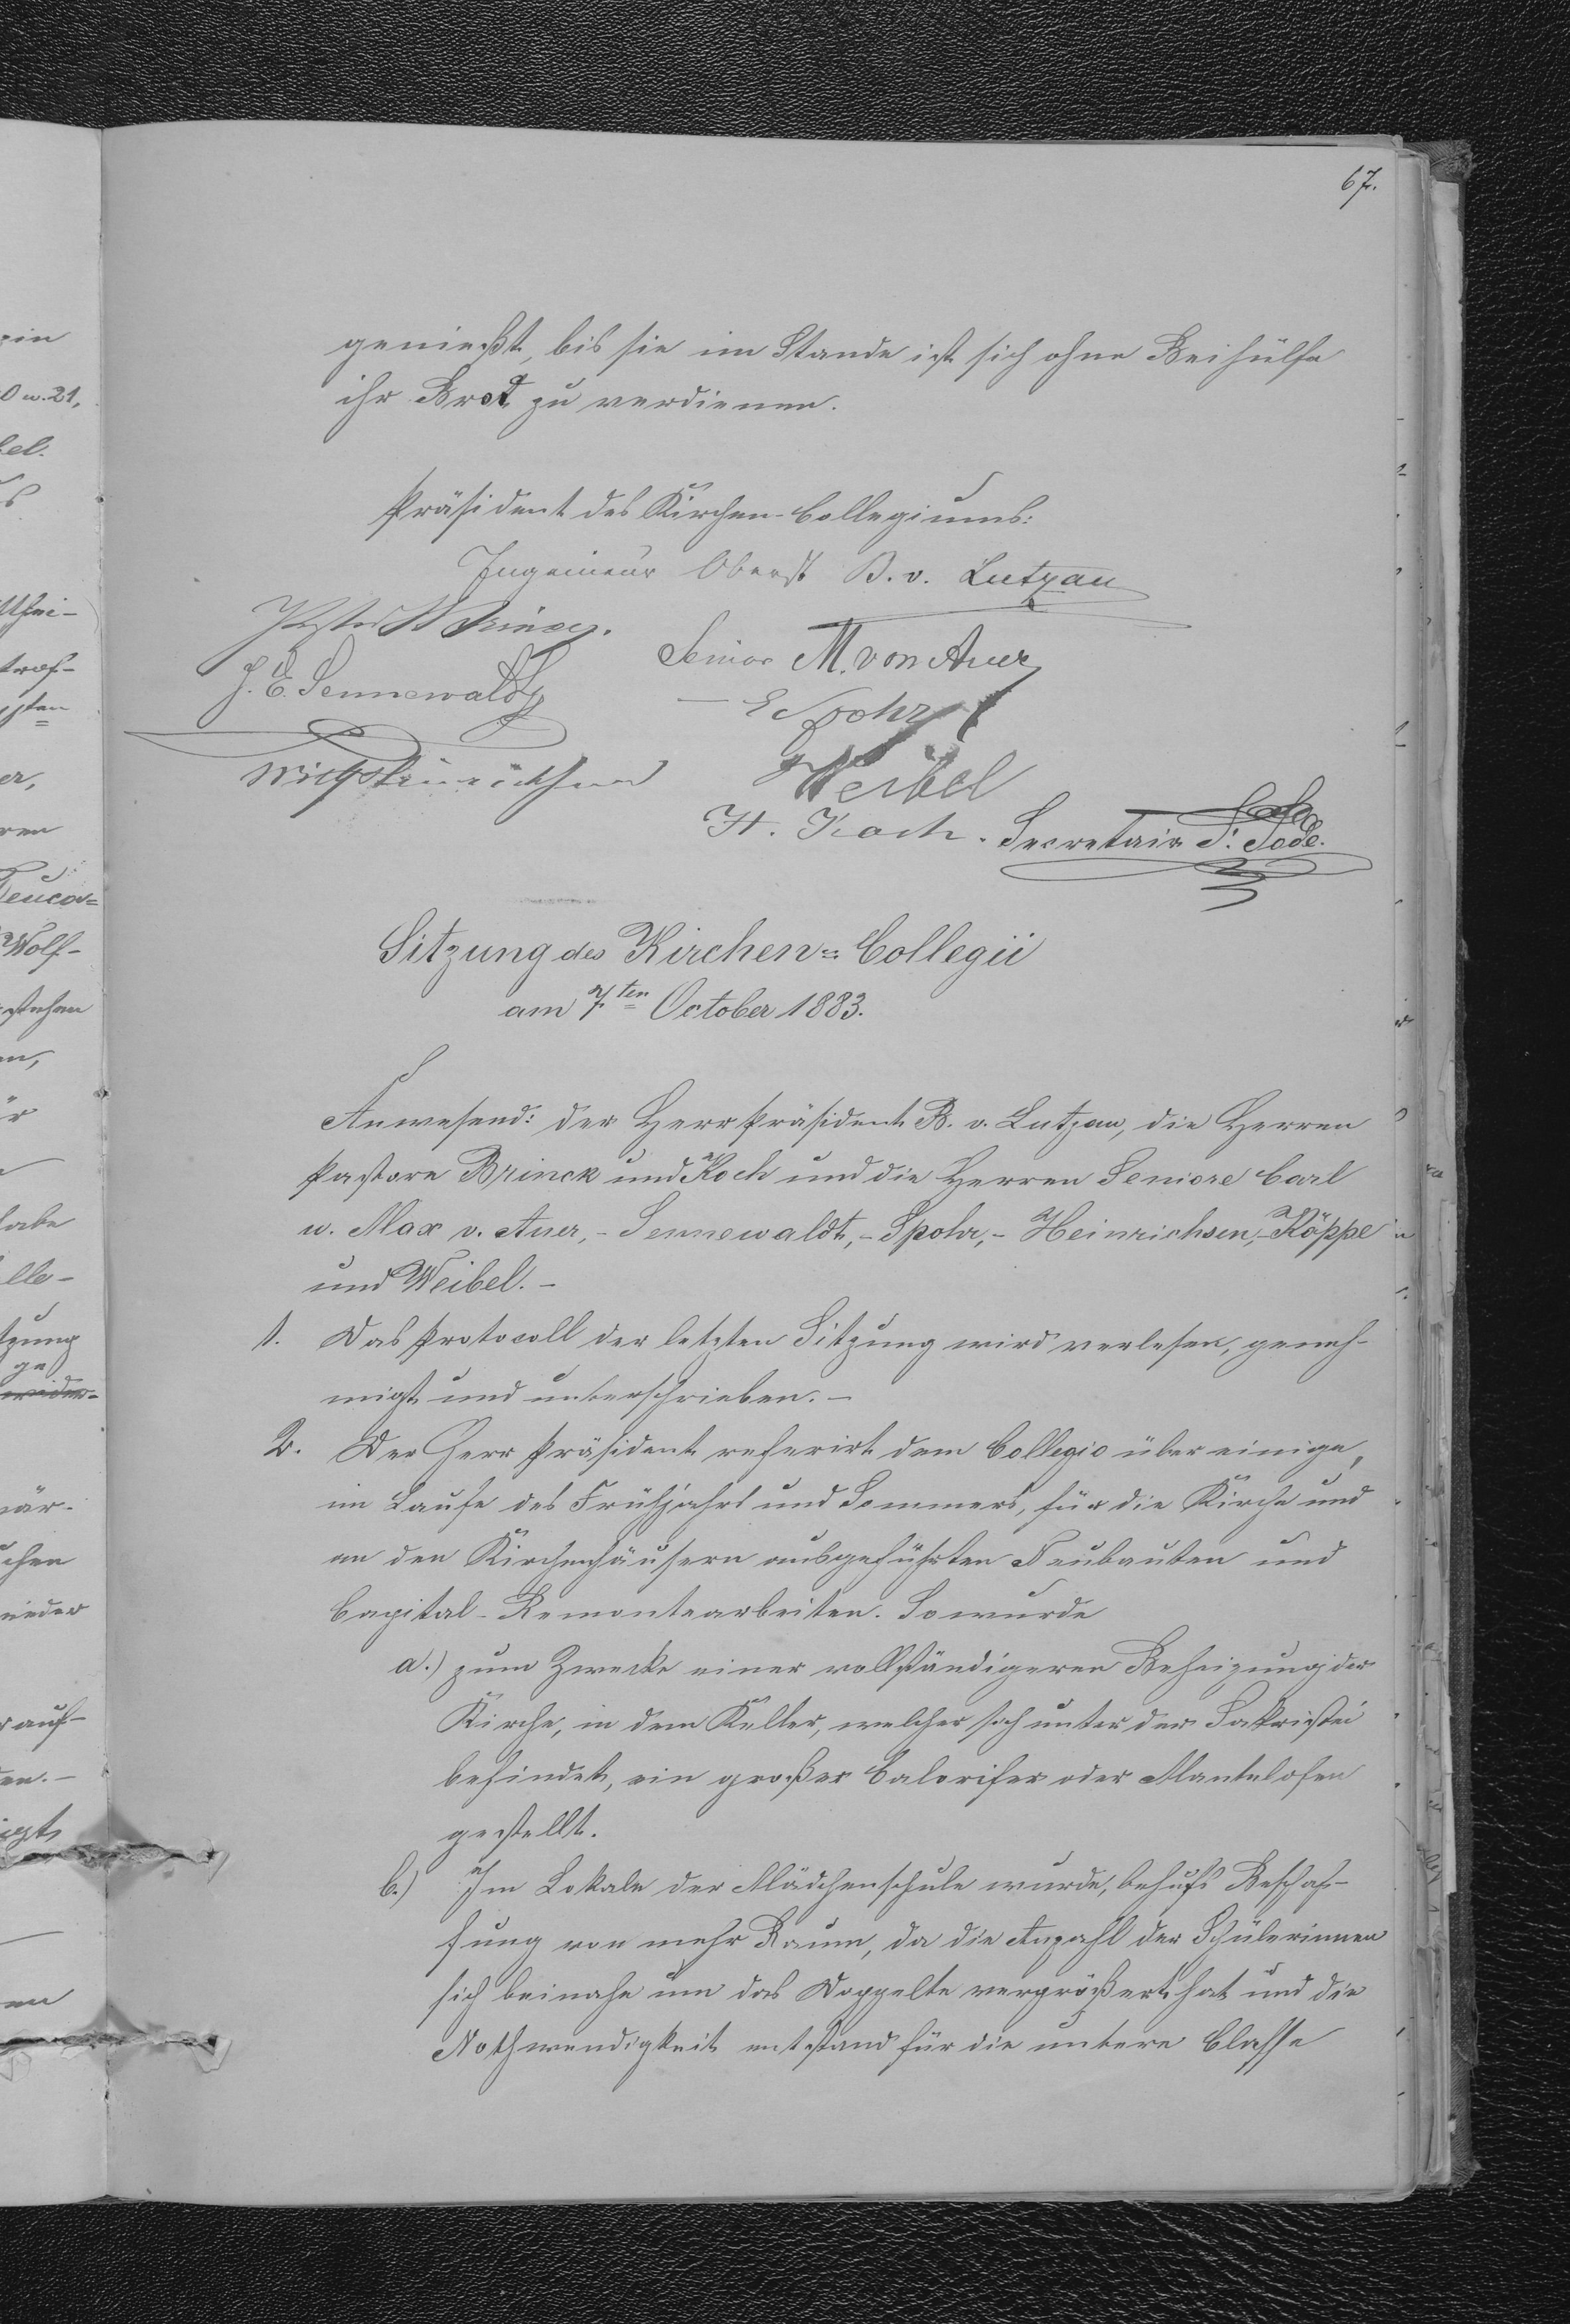 67.
genießt, bis sie im Stande ist sich ohne Beihülfe
ihr Brot zu verdienen.
Präsident des Kirchen-Collegiums:
Ingenieur Oberst B. v. Lutzau
Pastor Brinck.
Senior M. von Auer
J. E. Sennewaldt
E Spohr
Heinrichsen
Weibel
H. Koch. Secretair
Sitzung des Kirchen-Collegii
am 7ten October 1883.
Anwesend: der Herr Präsident B. v. Lutzau, die Herren
Pastore Brinck und Koch und die Herren Seniore Carl
u. Max v. Auer, - Sennewaldt, - Spohr, - Heinrichsen, - Köppe
und Weibel. -
1. Das Protocoll der letzten Sitzung wird verlesen, geneh-
migt und unterschrieben. -
2. Der Herr Präsident referirt dem Collegio über einige,
im Laufe des Frühjahrs und Sommers, für die Kirche und
an den Kirchenhäusern ausgeführten Neubauten und
Capital-Remontearbeiten. So wurde
a.) zum Zwecke einer vollständigeren Beheizung der
Kirche, in dem Keller, welcher sich unter der Sakristei
befindet, ein großer Calorifer oder Mantelofen
gestellt.
b.) Im Lokale der Mädchenschule wurde, behufs Beschaf-
fung von mehr Raum, da die Anzahl der Schülerinnen
sich beinahe um das Doppelte vergrößert hat und die
Nothwendigkeit entstand für die untere Classe